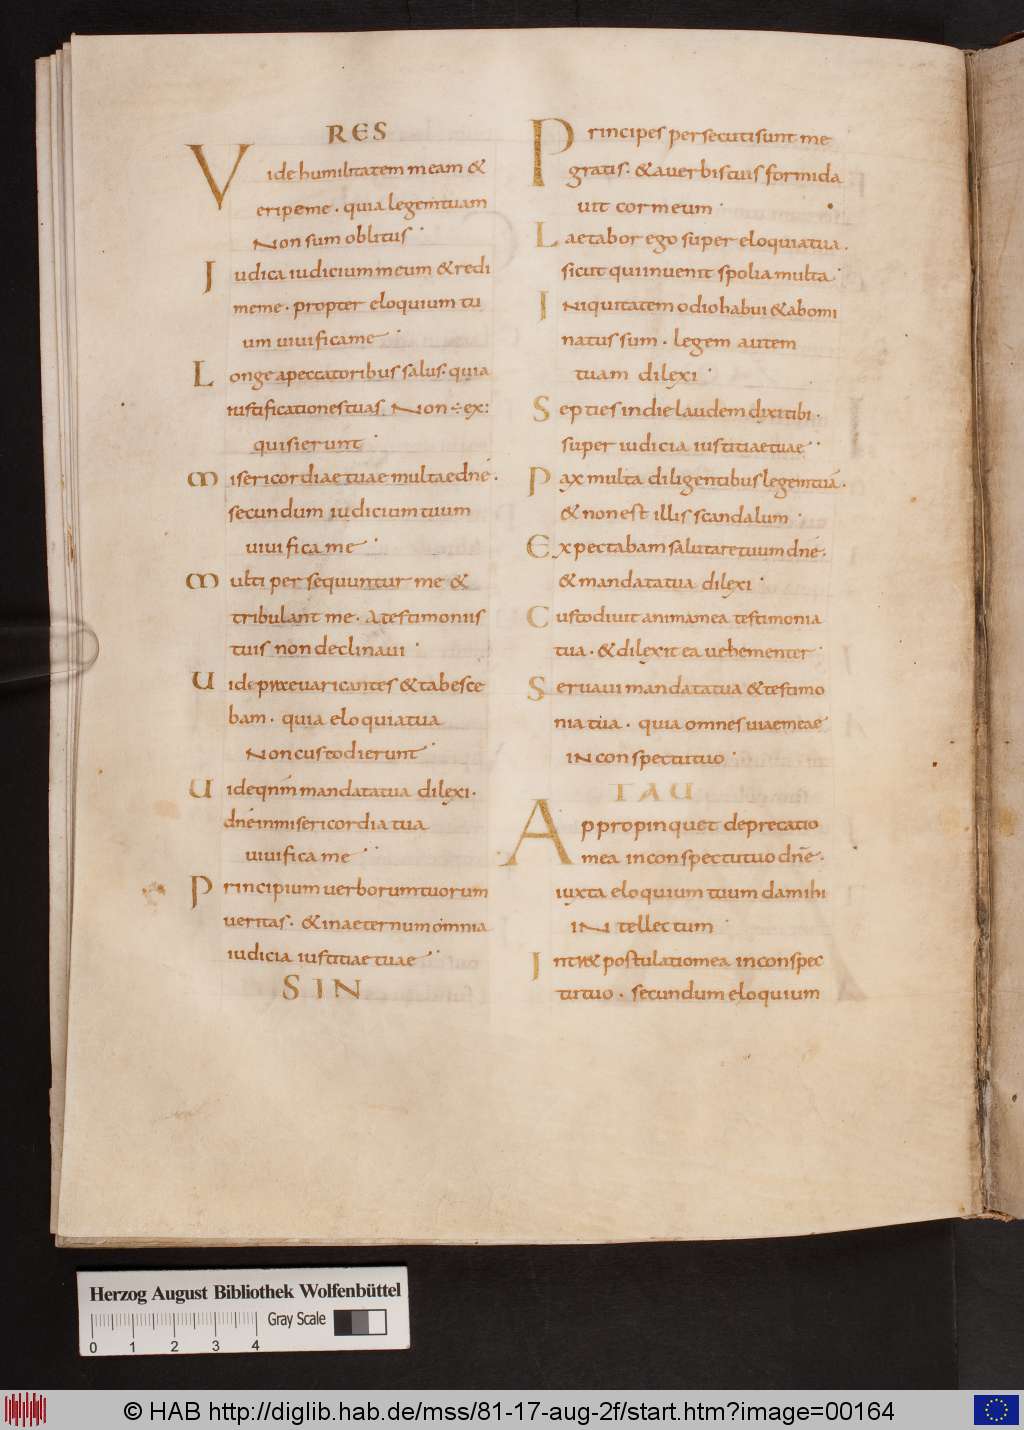 RES
Vide humilitatem meam &
eripeme · quia legem tuam
Non sum oblitus ·
Iudica iudicium meum & redi
meme · propter eloquium tu
um uiuificame ·
Longe apeccatoribus salus · quia
iustificationes tuas Non ÷ ex:
quisierunt ·
Misericordiae tuae multae dnē ·
secundum iudicium tuum
uiuifica me ·
Multi persequuntur me &
tribulant me · Atestimoniis
tuis non declinaui ·
Uide praeuaricantes & tabesce
bam · quia eloquia tua
Non custodierunt ·
Uide qnm̄ mandata tua dilexi ·
dnē in misericordia tua
uiuifica me ·
Principium uerborum tuorum
ueritas · & inaeternum omnia
iudicia iustitiae tuae ·
SIN
Principes persecuti sunt me
gratis · & auerbis tuis formida
uit cor meum ·
Laetabor ego super eloquia tua ·
sicut qui inuenit spolia multa ·
Iniquitatem odio habui & abomi
natus sum · legem autem
tuam dilexi ·
Septies in die laudem dixi tibi ·
super iudicia iustitiae tuae ·
Pax multa diligentibus legem tuā ·
& non est illis scandalum ·
Expectabam salutare tuum dnē ·
& mandata tua dilexi ·
Custodiuit anima mea testimonia
tua · & dilexit ea uehementer ·
Seruaui mandata tua & testimo
nia tua · quia omnes uiae meae
IN conspectu tuo ·
TAU
Appropinquet deprecatio
mea in conspectu tuo dnē ·
iuxta eloquium tuum da mihi
IN tellectum ·
Intr& postulatio mea in conspec
tu tuo · secundum eloquium
Herzog August Bibliothek Wolfenbüttel
Gray Scale
0 1 2 3 4
© HAB http://diglib.hab.de/mss/81-17-aug-2f/start.htm?image=00164